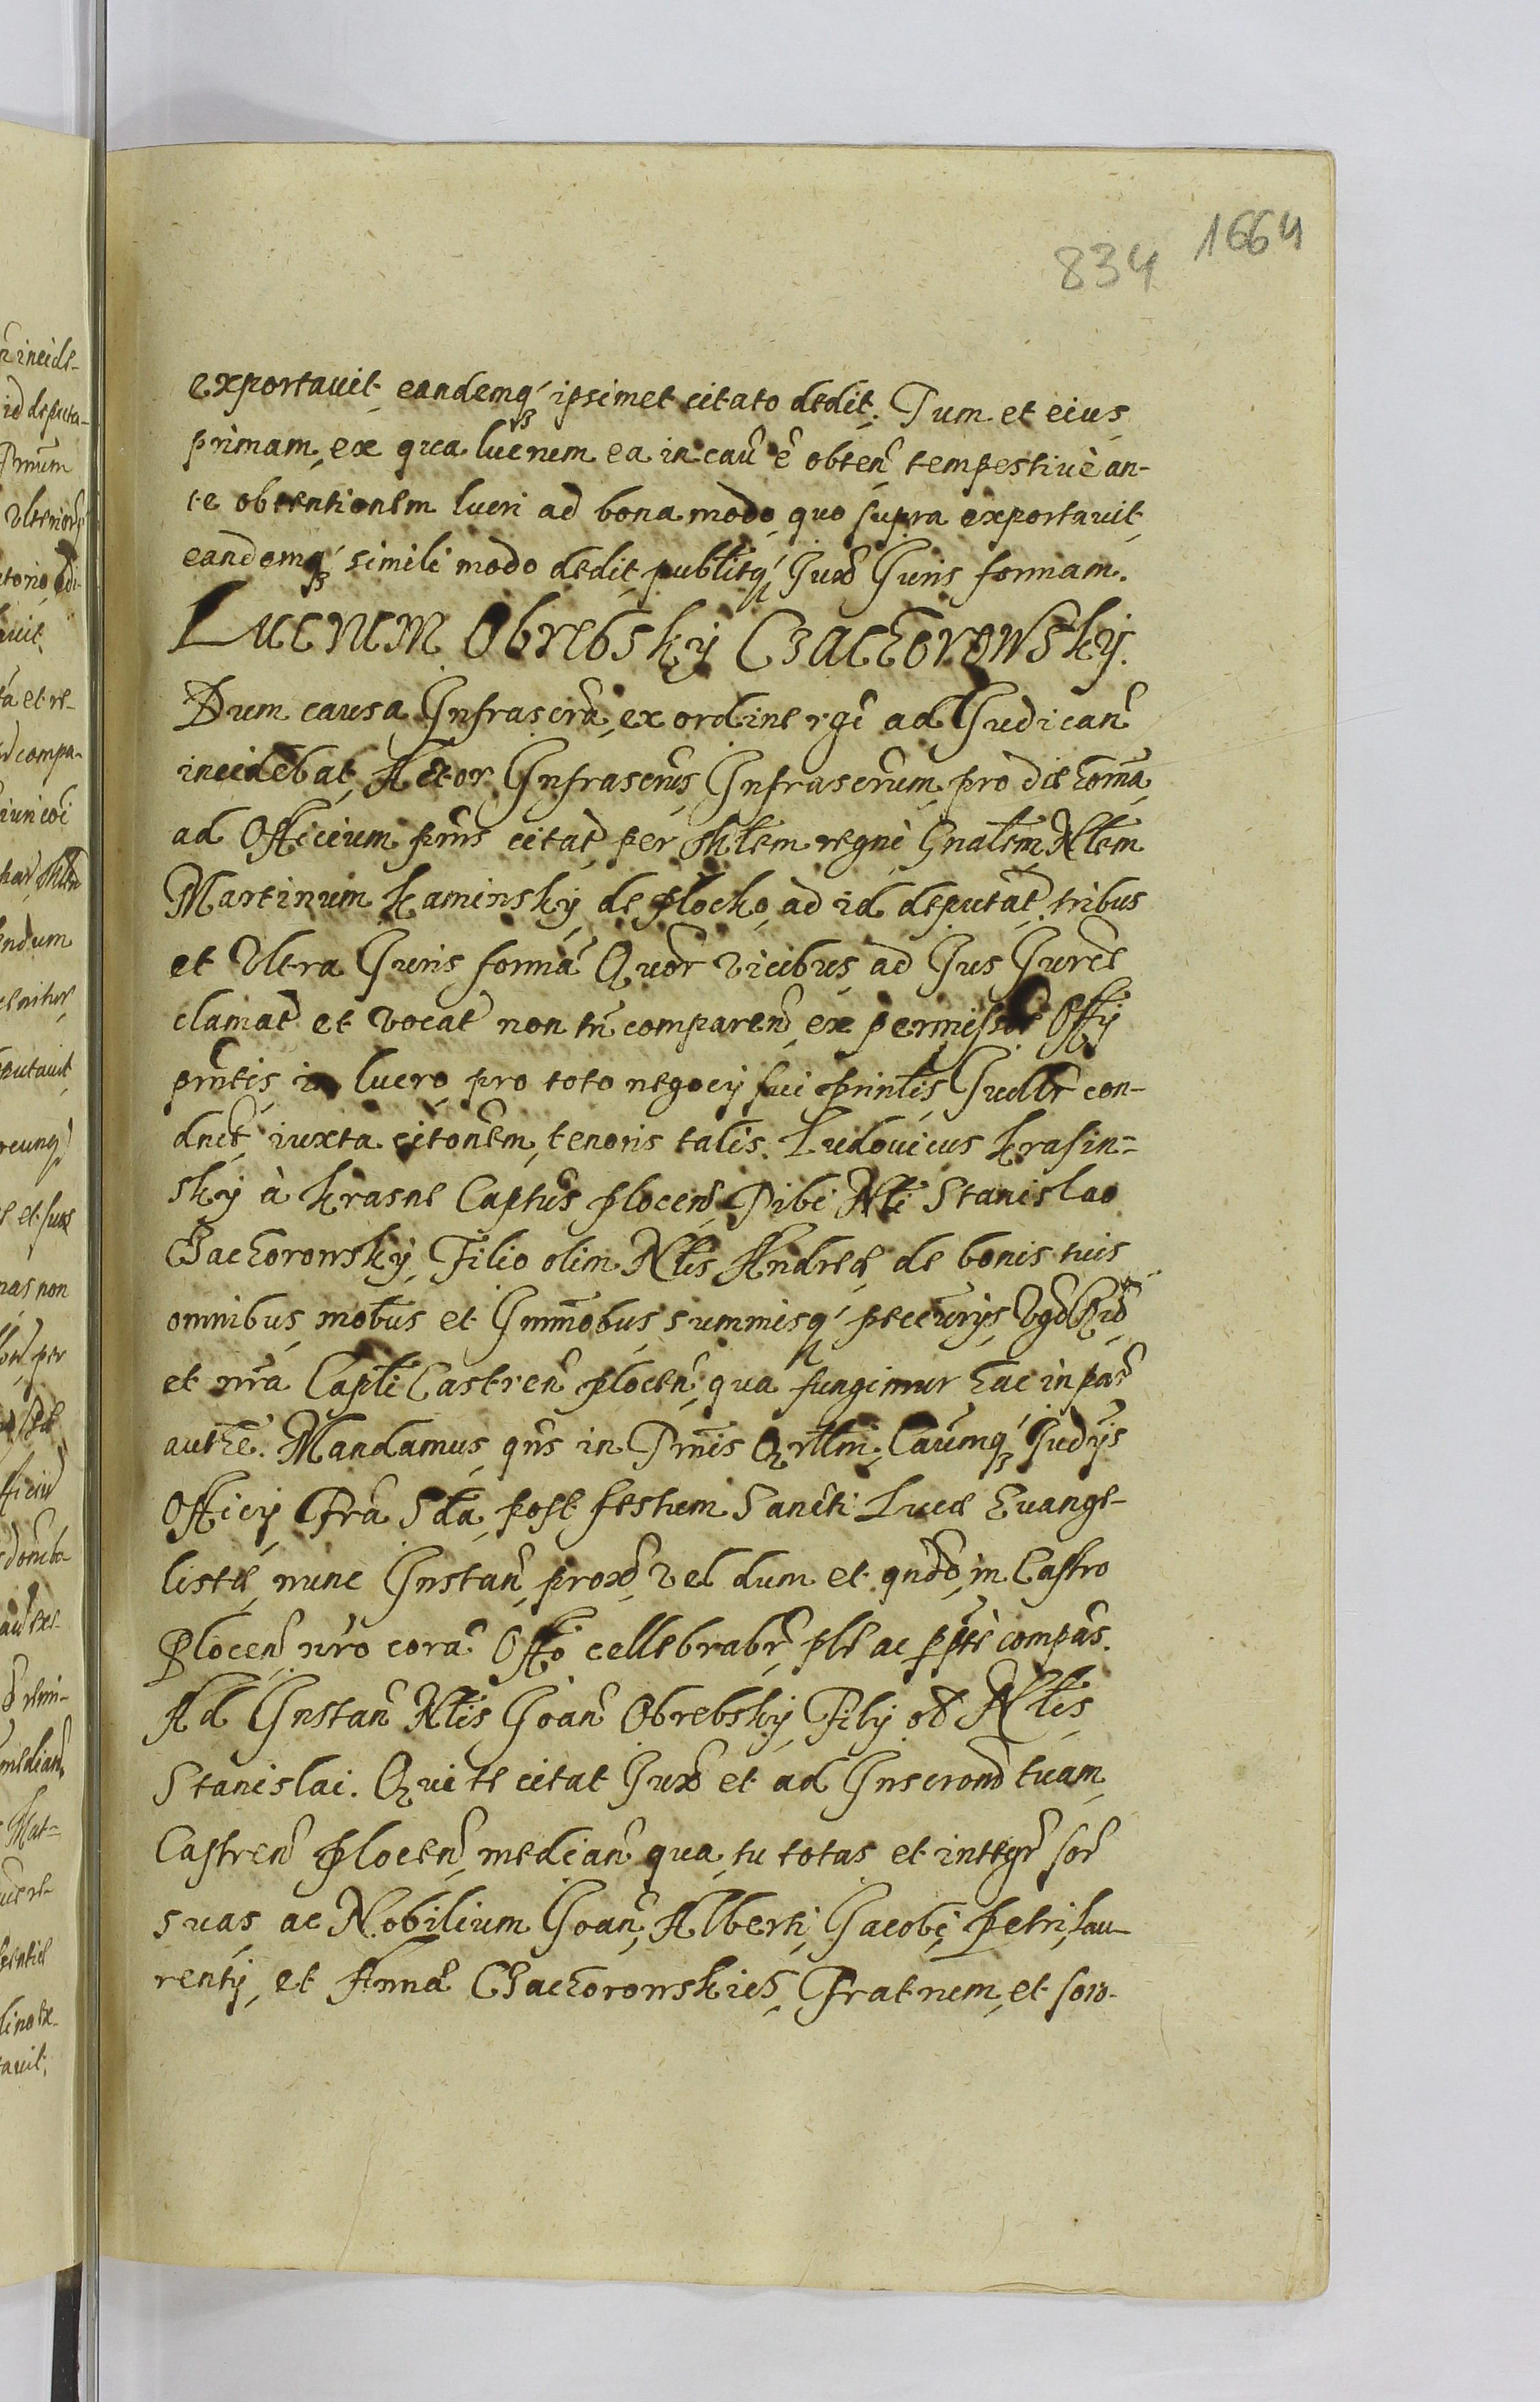 1664
834
exportauit eandemq₃ ipsimet citato dedit. Tum et eius
primam, ex qua lucrum ea in cau͂ e͂ obten͂ tempestiuè an-
te obtentionem lucri ad bona modo quo supra exportauit
eandemq₃ simili modo dedit publitq₃ Jux͂ Juris formam.
Lucrum Obrebsky Czachorowsky.
Dum causa Infrascra͂ ex ordine rg͂i ad Judican͂
incidebat, Actor Infrascru͂s Infrascru͂m pro die horna͂
ad Officium pn͂s citat͂ per Mt͂em regni Gnalt͂m Nt͂em
Martinum Kaminsky de Plocko ad id deputat͂ tribus
et Vltra Juris forma͂ Quor͂ vicibus ad Jus Jure͂
clamat͂ et vocat͂ non tn͂ comparen͂ ex permissio͂e Offy
pn͂tis in lucro pro toto negocy sui prinlis͂ Judlr͂ con-
dn͂t, iuxta citone͂m, tenoris talis. Ludouicus Krasin-
sky à Krasne Captus͂ Plocen͂ Tibi Nt͂i Stanislao
Czachorowsky, Filio olim Nt͂is Andreæ de bonis tuis
omnibus mobus͂ et Immobus͂ summisq₃ pecc͂urys
et nr͂a Capt͂i Castren͂ Plocen͂ qua fungimur hac in par͂
auth͂e. Mandamus, qn͂s in Trn͂is Qrlm͂i, Cau͂rumq₃ Judys
Officy Fr͂a Sd͂a post festum Sancti Lucæ Euange-
listæ, nunc Instan͂ prox͂ vel dum et qn͂do in Castro
Plocen͂ nr͂o cora͂ Offo͂ cellebrabr͂ ple͂ ac ppt͂è compas͂.
Ad Instan͂ Nt͂is Joan͂ Obrebsky, Fily ol͂ Nt͂is
Stanislai. Qui te citat Jux͂ et ad Inscron͂ tuam
Castren͂ Plocen͂, median͂ qua tu totas et integr͂ sor͂
suas ac Nobilium Joan͂, Alberti, Jacobi, Petri, Lau-
renty, et Annæ Czachorowskich, Fratrum, et soro-